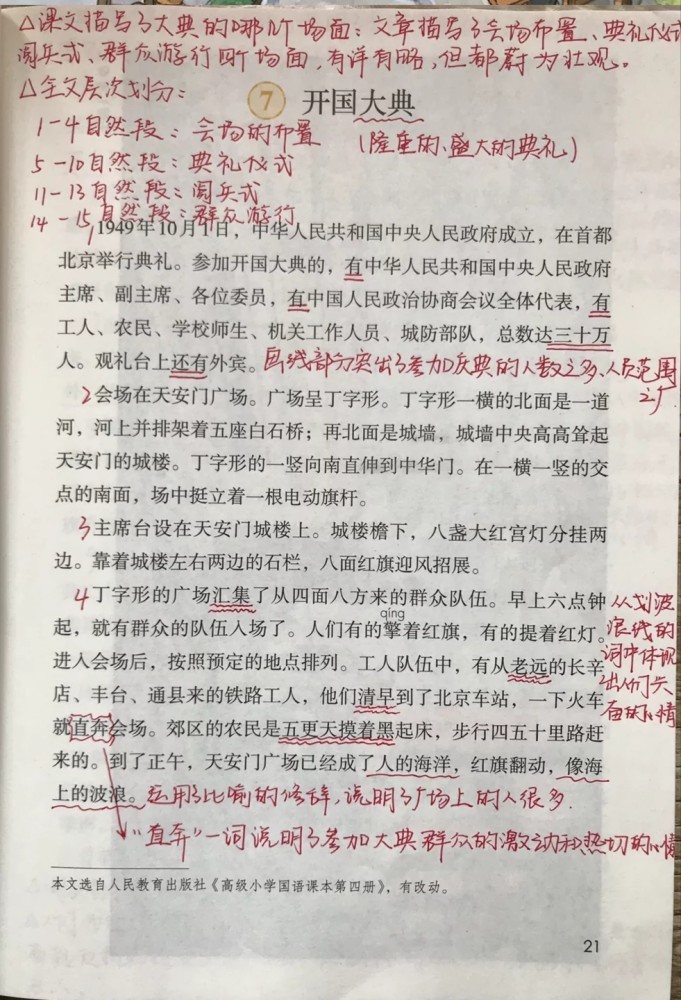 △课文描写了大典的哪几个场面：文章描写了会场布置、典礼仪式
阅兵式、群众游行四个场面，有详有略，但都蔚为壮观。
△全文层次划分：
7 开国大典
1-4自然段：会场的布置
（隆重的、盛大的典礼）
5-10自然段：典礼仪式
11-13自然段：阅兵式
14-15自然段：群众游行
1 1949年10月1日，中华人民共和国中央人民政府成立，在首都
北京举行典礼。参加开国大典的，有中华人民共和国中央人民政府
主席、副主席、各位委员，有中国人民政治协商会议全体代表，有
工人、农民、学校师生、机关工作人员、城防部队，总数达三十万
人。观礼台上还有外宾。画线部分突出了参加庆典的人数之多、人员范围
之广
2会场在天安门广场。广场呈丁字形。丁字形一横的北面是一道
河，河上并排架着五座白石桥；再北面是城墙，城墙中央高高耸起
天安门的城楼。丁字形的一竖向南直伸到中华门。在一横一竖的交
点的南面，场中挺立着一根电动旗杆。
3主席台设在天安门城楼上。城楼檐下，八盏大红宫灯分挂两
边。靠着城楼左右两边的石栏，八面红旗迎风招展。
4丁字形的广场汇集了从四面八方来的群众队伍。早上六点钟
qíng
起，就有群众的队伍入场了。人们有的擎着红旗，有的提着红灯。
进入会场后，按照预定的地点排列。工人队伍中，有从老远的长辛
店、丰台、通县来的铁路工人，他们清早到了北京车站，一下火车
就直奔会场。郊区的农民是五更天摸着黑起床，步行四五十里路赶
来的。到了正午，天安门广场已经成了人的海洋，红旗翻动，像海
上的波浪。运用了比喻的修辞，说明了广场上的人很多.
从划波
浪线的
词中体现
出人们
的心情
"直奔"一词说明了参加大典群众的激动和热切的心情
本文选自人民教育出版社《高级小学国语课本第四册》，有改动。
21